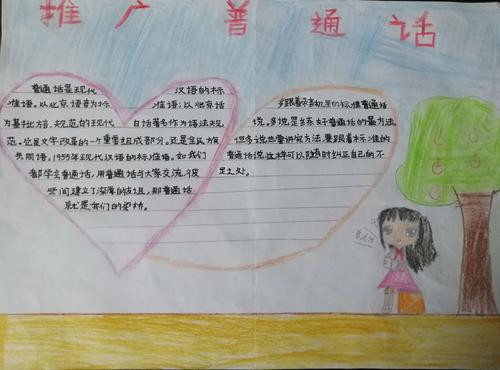 推广普通话
普通话是现代 汉语的标
准语。以北京语音为标 准语；以北京话
为基础方，规范的现代 白话著名作为语法规
范。它是文字改革的一个重要组成部分。还是全民族
共同语。1955年现代汉语的标准语。如我们
都学会普通话，用普通话与大家交流，彼
此间建立了深厚的友谊，那普通话
就是我们的桥梁。
多跟着收音机里的标准普通话
说。多说是练好普通话的最方法，
但多说也要讲究方法，要跟着标准的
普通话说，这样可以随时纠正自己的不
足之处。